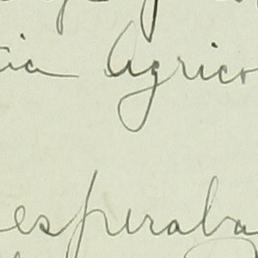 cia Agrico
esperaba